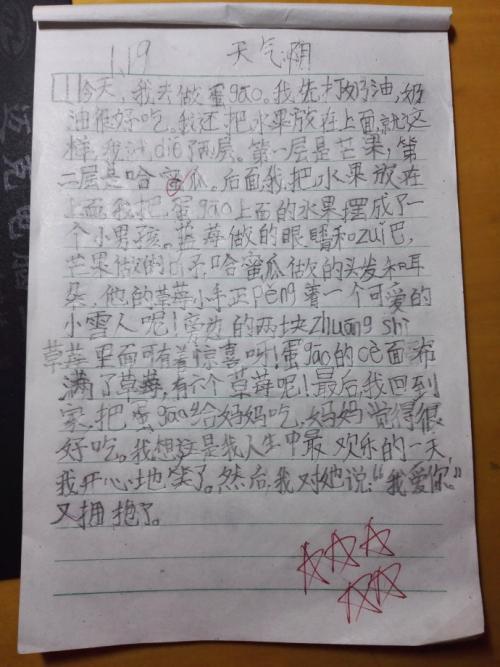 1.19 天气阴
今天,我去做蛋gāo。我先打奶油,奶
油很好吃。我还把水果放在上面,就这
样,我dié了两层。第一层是芒果,第
二层是哈蜜瓜。后面,我把水果放在
上面,我把蛋gāo上面的水果摆成了一
个小男孩。蓝莓做的眼睛和zuǐ巴,
芒果做的鼻子,哈蜜瓜做的头发和耳
朵,他的草莓小手正pěng着一个可爱的
小雪人呢!旁边的两块zhuāng shì
草莓里面可有着惊喜呀!蛋gāo的cè面布
满了草莓,有六个草莓呢!最后,我回到
家,把蛋gāo给妈妈吃,妈妈觉得很
好吃。我想这是我人生中最欢乐的一天,
我开心地笑了。然后,我对她说:“我爱你。”
又拥抱了。